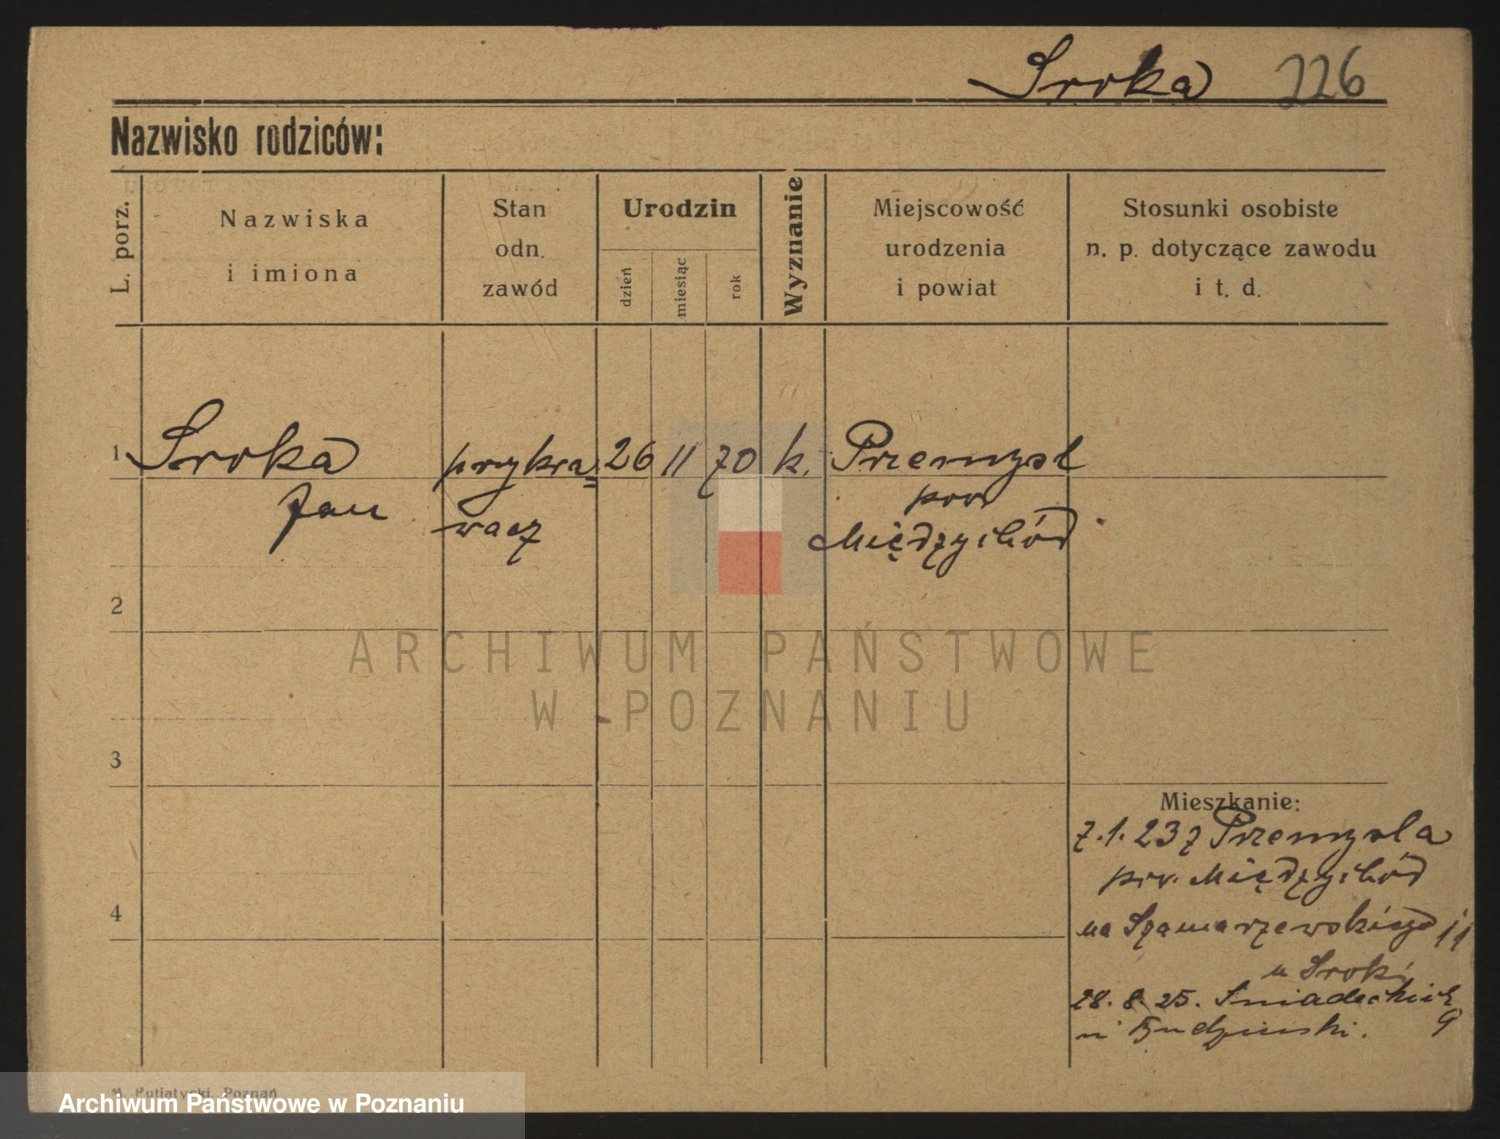 Sroka 226
Nazwisko rodziców:
L. porz.
Nazwiska
i imiona
Stan
odn.
zawód
Urodzin
dzień
miesiąc
rok
Wyznanie
Miejscowość
urodzenia
i powiat
Stosunki osobiste
n. p. dotyczące zawodu
i t. d.
1 Sroka przykra= 26 11 70 k. Przemysł
Jan wacz pow
Międzychód
2
ARCHIWUM PAŃSTWOWE
W POZNANIU
3
Mieszkanie:
7.1.23 z Przemysła
pow. Międzychód
4
na Szamarzewskiego 11
u Sroki
28.8.25. Śniadeckich 9
M. Putiatycki, Poznań
Archiwum Państwowe w Poznaniu